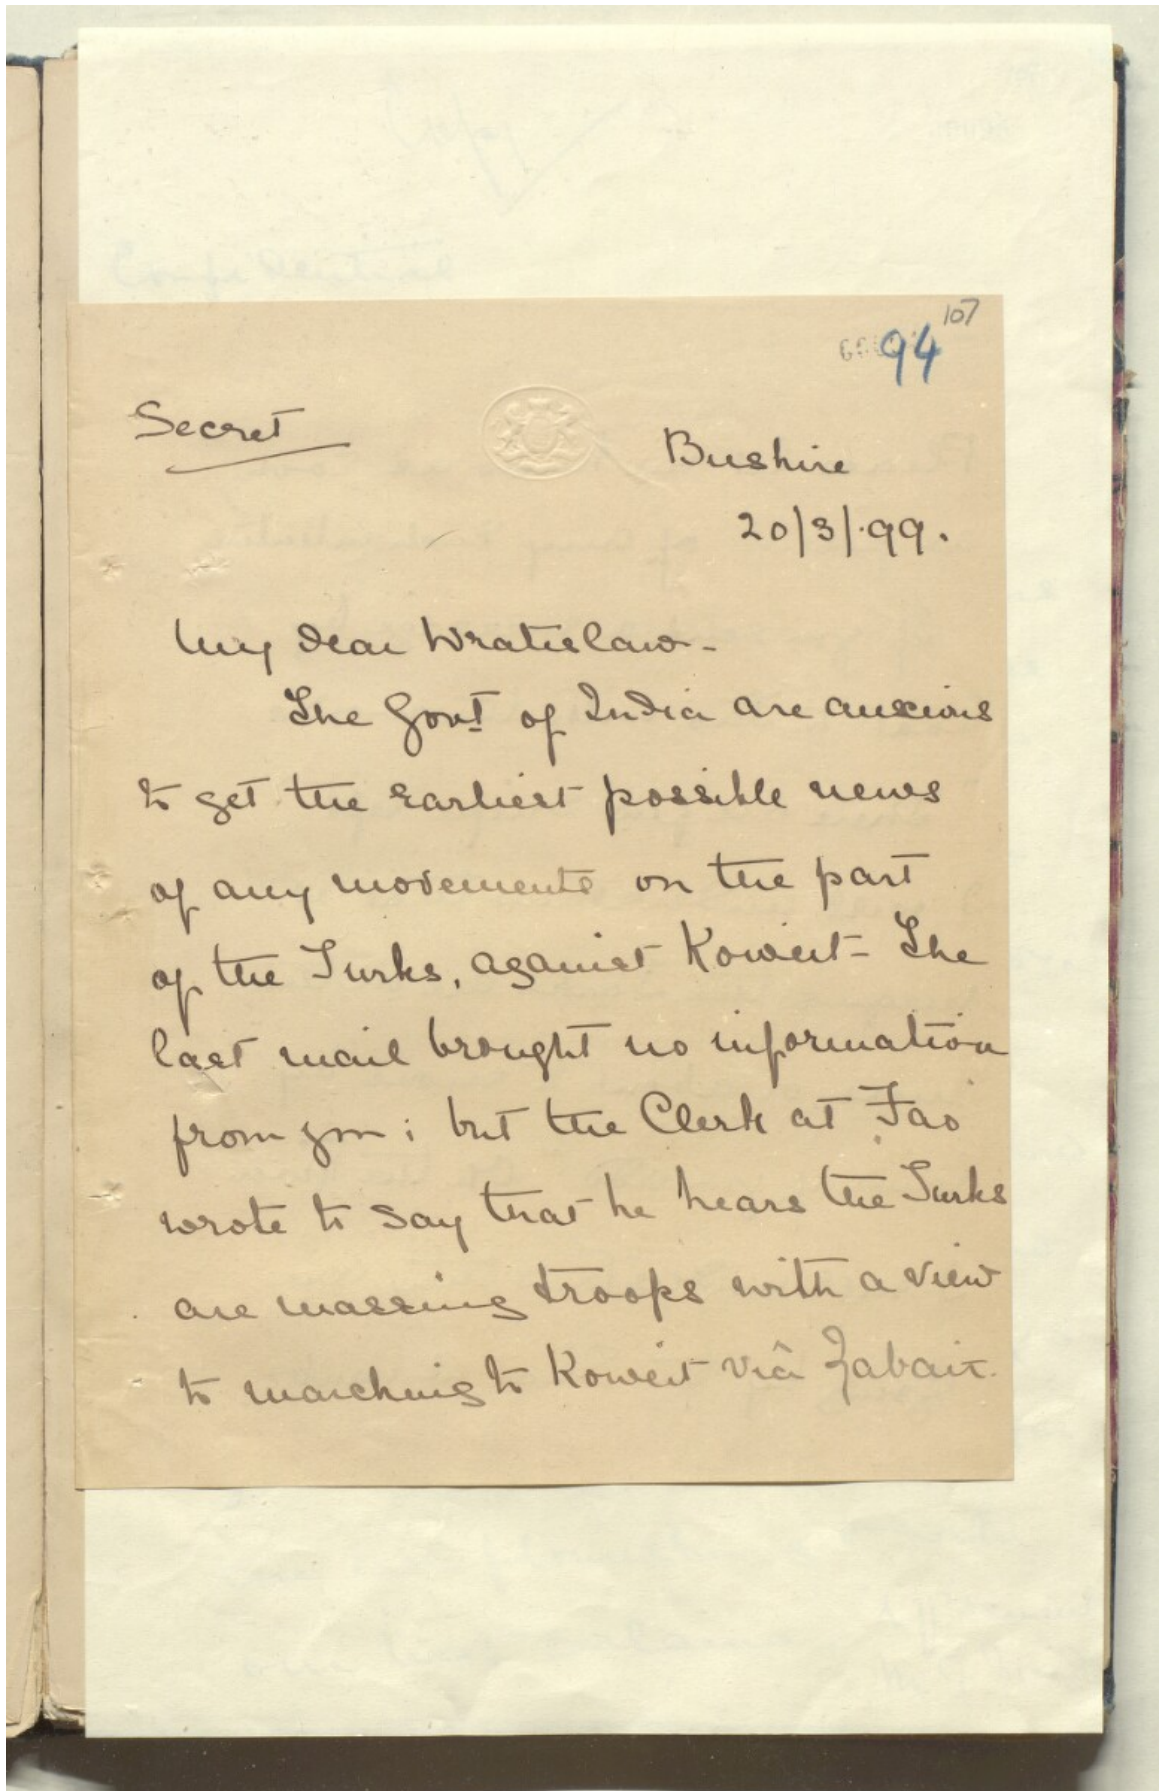 107
94
Secret
Bushire
20/3/.99.
My dear Wratislaw -
The Govt of India are anxious
to get the earliest possible news
of any movements on the part
of the Turks, against Koweit - The
last mail brought no information
from you; but the Clerk at Fao
wrote to say that he hears the Turks
are massing troops with a view
to marching to Koweit viâ Zabair.